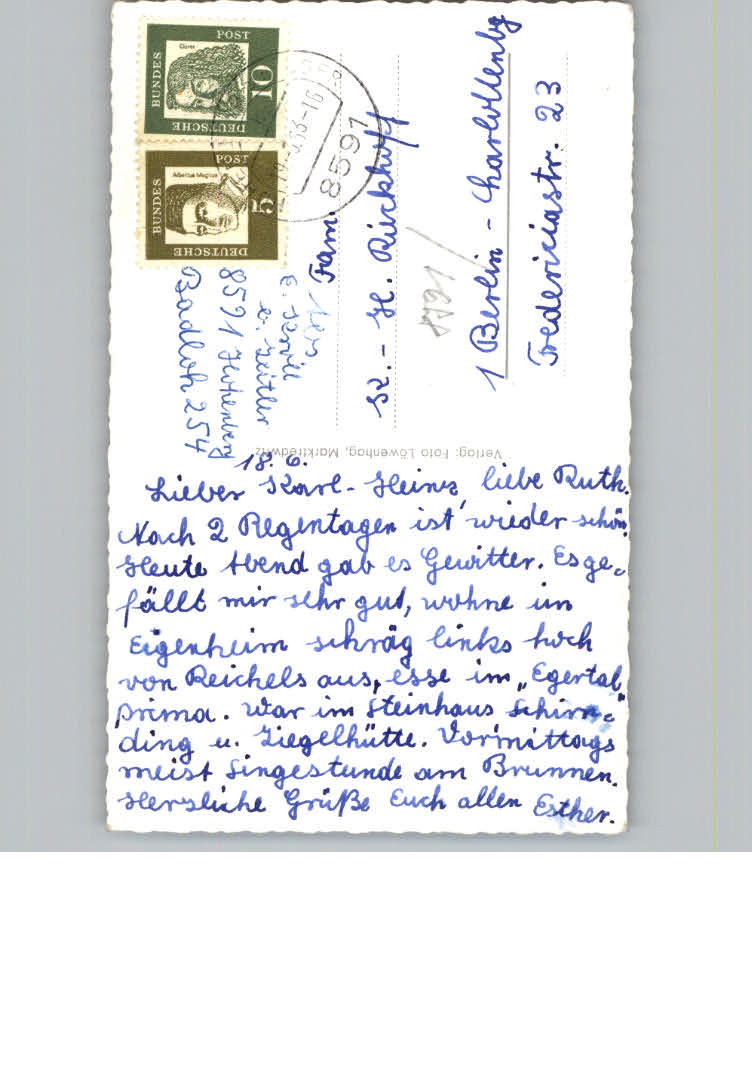 DEUTSCHE
BUNDES
POST
10
Dürer
DEUTSCHE
BUNDES
POST
5
Albertus Magnus
8591
Abs
b. Zeitler
8591 Hohenberg
Badloh 254
Fam.
K.-H. Rückhoff
1 Berlin - Charlottenbg
Fredericiastr. 23
Verlag: Foto Löwenhag, Marktredwitz
18. 6.
Lieber Karl-Heinz, liebe Ruth.
Nach 2 Regentagen ist wieder schön.
Heute Abend gab es Gewitter. Es ge-
fällt mir sehr gut, wohne im
Eigenheim schräg links hoch
von Reichels aus, esse im „Egertal"
prima. War im Steinhaus Schirn-
ding u. Ziegelhütte. Vormittags
meist Singestunde am Brunnen.
Herzliche Grüße Euch allen Esther.